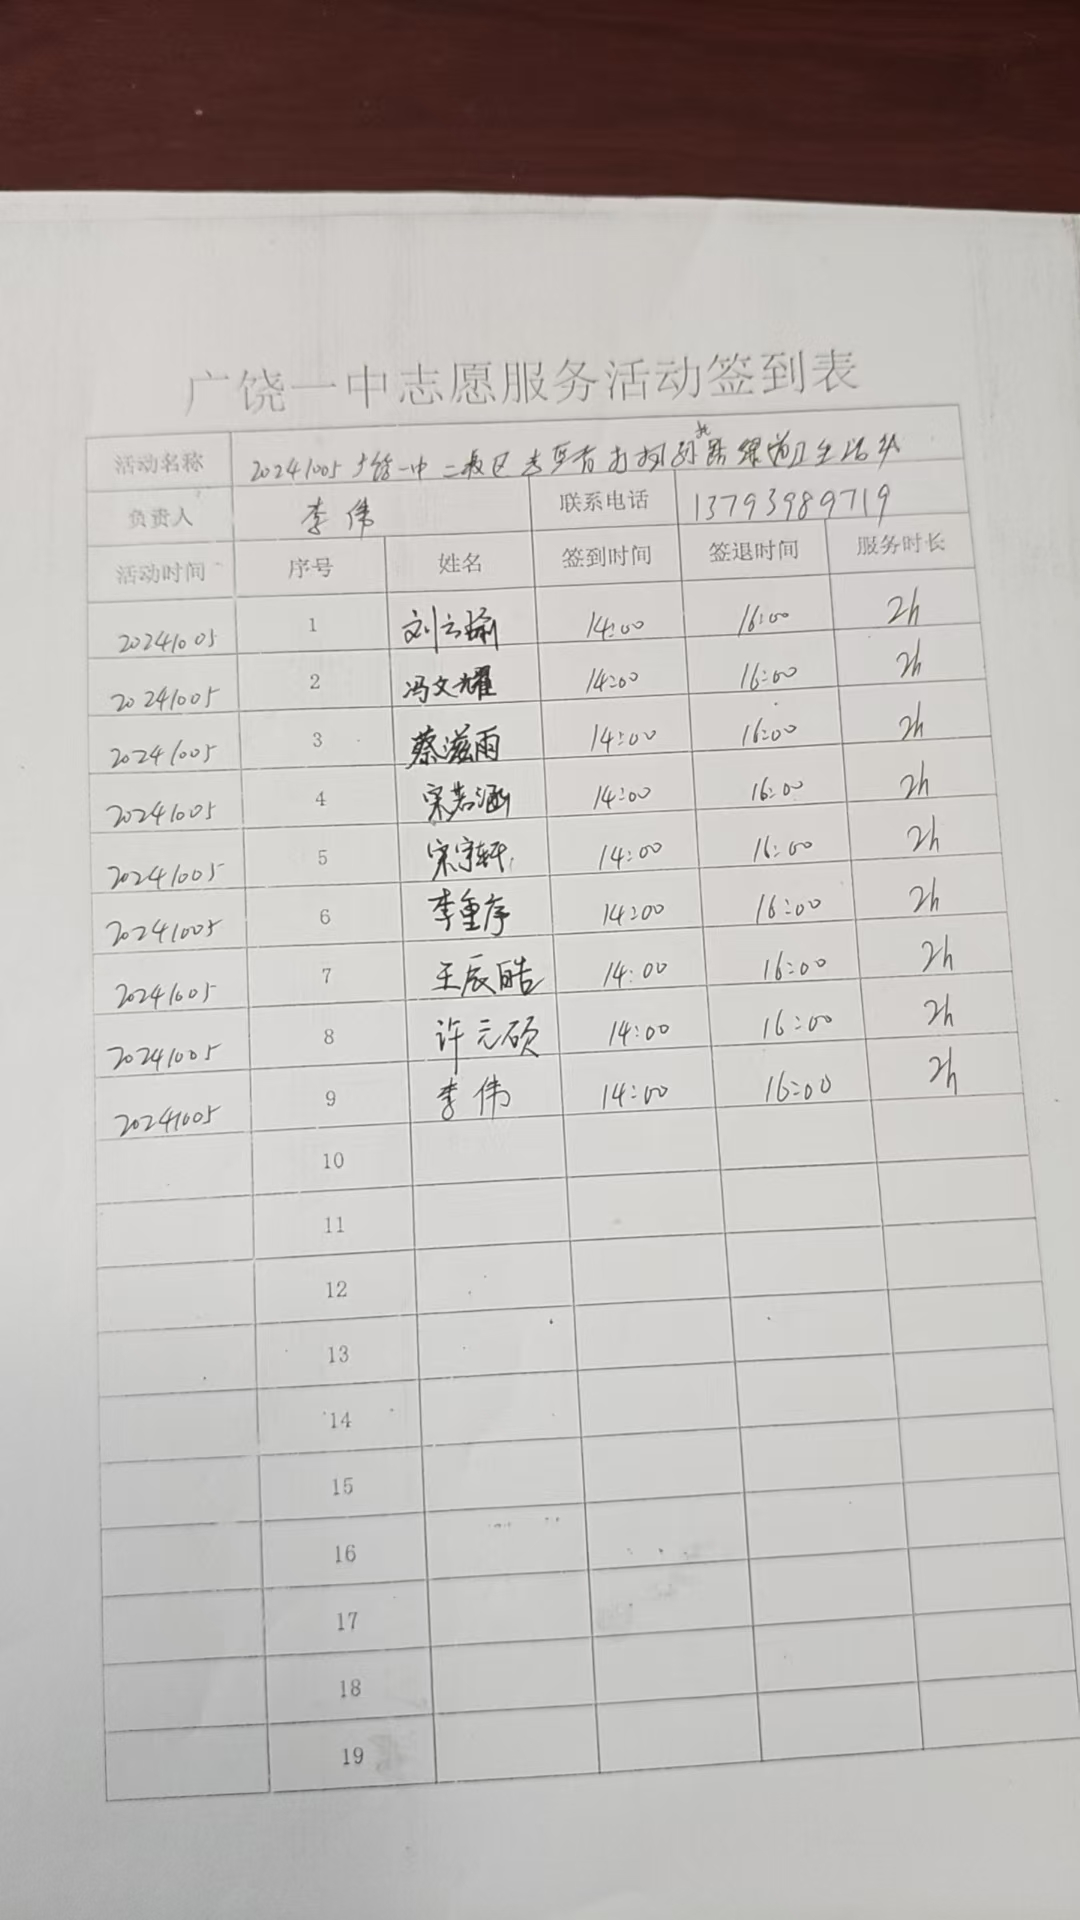 广饶一中志愿服务活动签到表
活动名称 20241005广饶一中二校区志愿者打扫孙路绿道卫生活动
负责人 李伟 联系电话 13793989719
活动时间 序号 姓名 签到时间 签退时间 服务时长
20241005 1 刘云瑜 14:00 16:00 2h
20241005 2 冯文耀 14:00 16:00 2h
20241005 3 蔡滋雨 14:00 16:00 2h
20241005 4 宋若涵 14:00 16:00 2h
20241005 5 宋宇轩 14:00 16:00 2h
20241005 6 李重序 14:00 16:00 2h
20241005 7 王辰皓 14:00 16:00 2h
20241005 8 许元硕 14:00 16:00 2h
20241005 9 李伟 14:00 16:00 2h
10
11
12
13
14
15
16
17
18
19